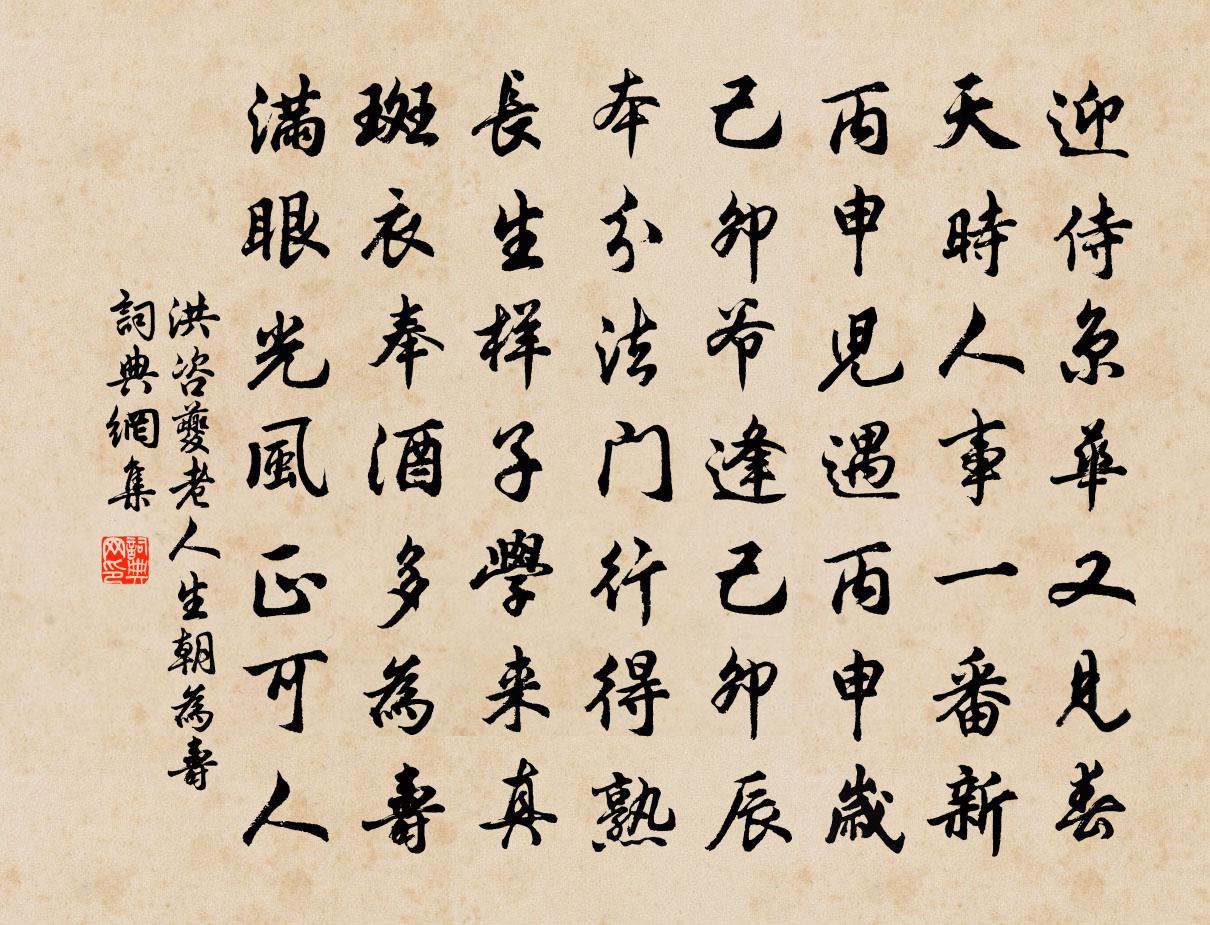 迎侍京華又見春
天時人事一番新
丙申兒遇丙申歲
己卯爺逢己卯辰
本分法門行得熟
長生样子學来真
斑衣奉酒多為壽
滿眼光風正可人
洪咨夔老人生朝為壽
詞典網集
詞典网印